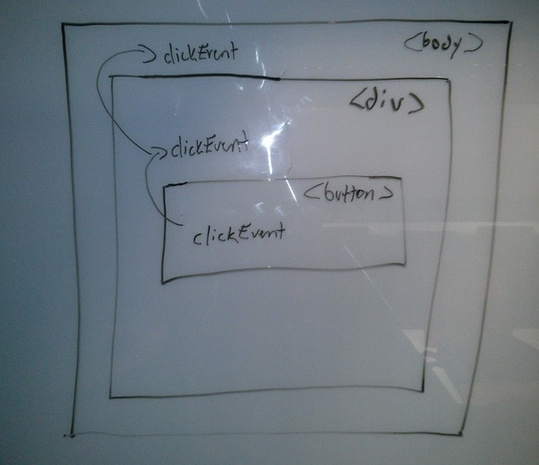 clickEvent <body>
<div>
clickEvent
<button>
clickEvent